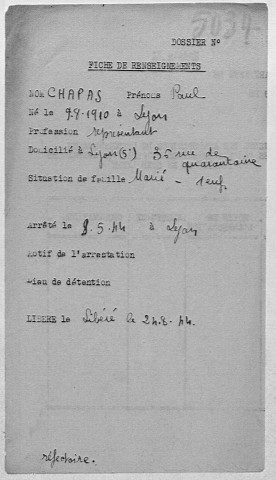 5034
DOSSIER N°
FICHE DE RENSEIGNEMENTS
NOM CHAPAS Prénoms Paul
Né le 9.8.1910 à Lyon
Profession représentant
Domicilié à Lyon (5°) 35 rue de
quarantaine
Situation de famille Marié - 1 enf.
Arrêté le 8.5.44 à Lyon
Motif de l'arrestation
Lieu de détention
LIBERE le Libéré le 24.8.44.
réfectoire.